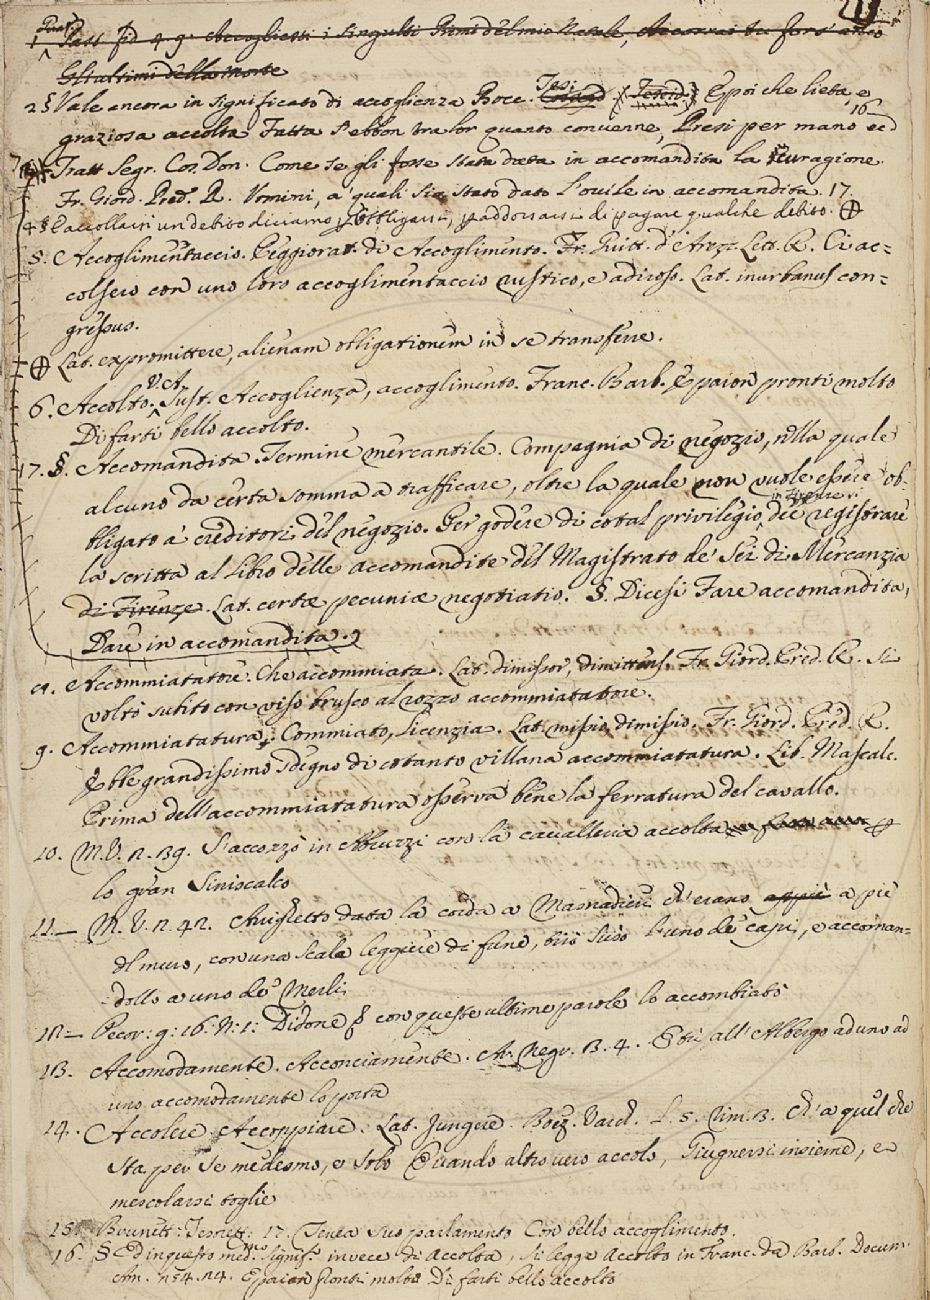 1 Past fid 4. 9. Accoglietti i singulti Primi del mio Natale, Accorrai tu fors' anco
Gli ultimi della morte
2 § Vale ancora in significato di accoglienza Bocc. Tesi: E poi che lieta, e
graziosa accolta Fatta s'ebbon tra lor quanto convenne, Presi per mano ec
16
Tratt Segr. Cos. Don. Come se gli fosse stata data in accomandita la curagione.
Fr. Giord. Pred. R. Uomini, a' quali sia stato dato l'ovile in accomandita. 17.
4 § E accollarsi un debito diciamo obbligarsi, addossarsi di pagare qualche debito. ⊕
5. Accoglimentaccio. Peggiorat. di Accoglimento. Fr. Guitt. d'Arezz. Lett. R. Ci ac=
colsero con uno loro accoglimentaccio rustico, e adiroso. Lat. inurbanus con=
gressus.
⊕ Lat. expromittere, alienam obligationem in se transferre.
6. Accolto. V. A. Sust. Accoglienza, accoglimento. Franc. Barb. E paion pronti molto
Di farti bello accolto.
17. §. Accomandita Termine mercantile. Compagnia di negozio, nlla quale
alcuno da certa somma a trafficare, oltre la quale non vuole essere ob-
bligato a' creditori del negozio. Per godere di cotal privilegio, in Firenze si dee registrare
la scritta al Libro delle accomandite del Magistrato de' Sei di Mercanzia
di Firenze. Lat. certæ pecuniæ negotiatio. §. Dicesi Fare accomandita,
Dare in accomandita.
Accommiatatore. Che accommiata. Lat. dimissor, dimittens. Fr. Giord. Pred. R. Si
voltò subito con viso brusco al rozzo accommiatatore.
9. Accommiatatura. Commiato, Licenzia. Lat. missio, dimissio. Fr. Giord. Pred. R.
Ebbe grandissimo sdegno di cotanto villana accommiatatura. Lib. Mascalc.
Prima dell'accommiatatura osserva bene la ferratura del cavallo.
10. M. V. 2. 39. S'accozzò in Abruzzi con la cavalleria accolta
lo gran Siniscalco
11. — M. V. 2. 42. Arrighetto data la corda a Masnadieri ch'erano appiè a piè
del muro, con una scala leggiere di fune, tirò suso l'uno de' capi, e accoman=
dollo a uno de' Merli
12. — Pecor: g: 16: N: 1: Didone con queste ultime parole lo accombiatò
13. Accomodamente. Acconciamente. Ar. Negr. 3. 4. E tu all'Albergo ad uno ad
uno accomodamente lo porta
14. Accolere Accoppiare. Lat. Jungere. Boez. Varch. L. 5. Rim. 3. Ch'a quel che
sta per se medesmo, e solo Quando altro vero accolo, Giugnersi insieme, e
mescolarsi toglie
15. Brunett: Tesorett: 17. Tenea suo parlamento Con bello accoglimento.
16. § Ed in questo med.mo signif.o invece di Accolta, si legge Accolto in Franc. da Barb. Docum.
Am. 254. 24. E paion pronti molto Di farti bello accolto